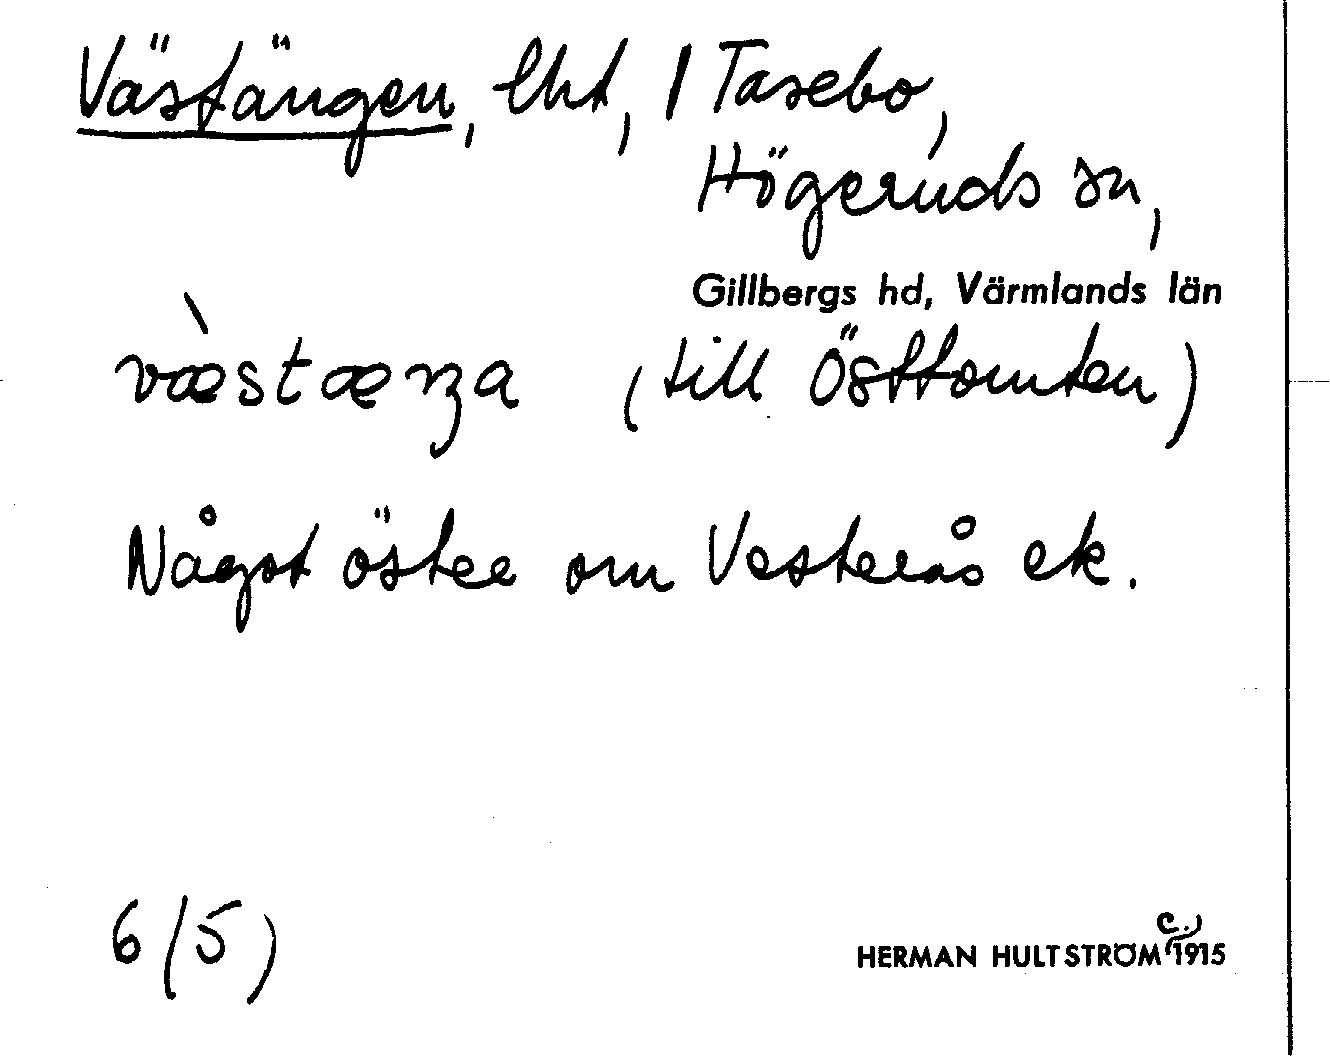 Västängen, lht, 1 Tasebo,
Högeruds sn,
Gillbergs hd, Värmlands län
væ̀stæŋa (till Östtomten)
Något öster om Vesterås ek.
6 (5)
HERMAN HULTSTRÖM (c.) 1915